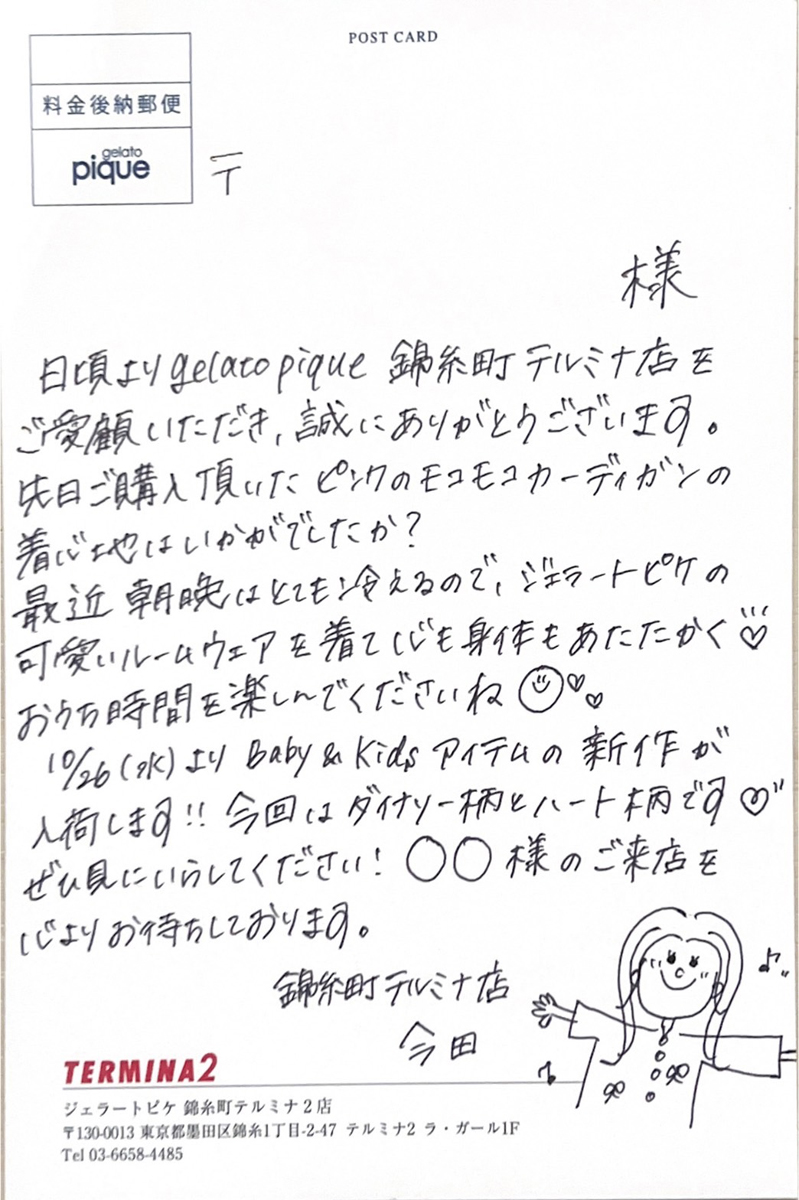 POST CARD
料金後納郵便
gelato
pique
〒
様
日頃よりgelato pique 錦糸町テルミナ店を
ご愛顧いただき、誠にありがとうございます。
先日ご購入頂いたピンクのモコモコカーディガンの
着心地はいかがでしたか?
最近朝晩はとても冷えるので、ジェラートピケの
可愛いルームウェアを着て心も身体もあたたかく♡
おうち時間を楽しんでくださいね☺♡♡
10/26(水)より Baby & Kids アイテムの新作が
入荷します!!今回はダイナソー柄とハート柄です♡
ぜひ見にいらしてください!〇〇様のご来店を
心よりお待ちしております。
錦糸町テルミナ店
今田
TERMINA2
ジェラートピケ 錦糸町テルミナ2店
〒130-0013 東京都墨田区錦糸1丁目-2-47 テルミナ2 ラ・ガール1F
Tel 03-6658-4485